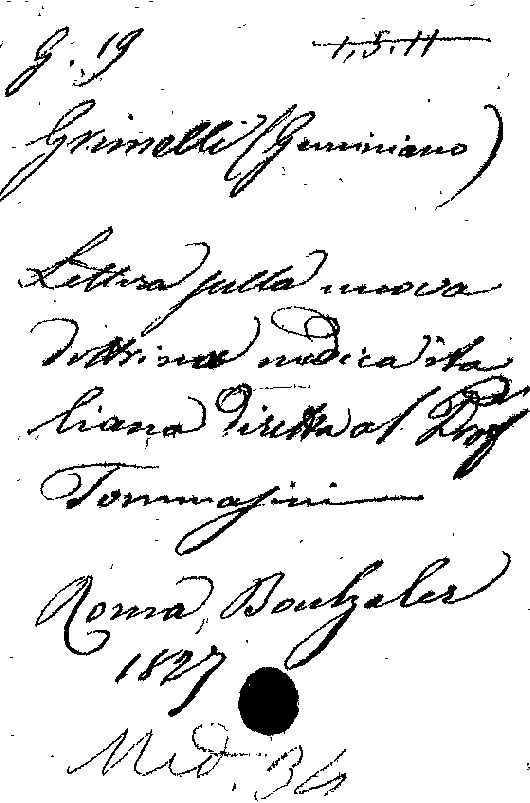 G. 19 1,5.11
Grimelli (Geminiano)
Lettera sulla nuova
dottrina medica ita
liana diretta al Prof
Tommasini
Roma, Boulzaler
1827
Med. 34